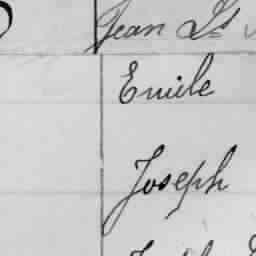 Jean Bt
Emile
Joseph